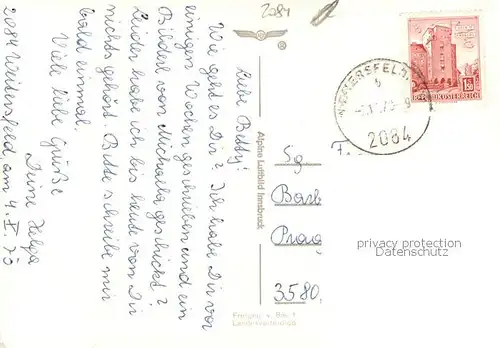 2084
Liebe Betty!
Wie geht es Dir? Ich habe Dir vor
einigen Wochen geschrieben und ein
Bilderl von Michaela geschickt?
Leider habe ich bis heute von Dir
nichts gehört. Bitte schreibe mir
bald einmal.
Viele liebe Grüße
Deine Helga
2084 Weitersfeld, am 4. X. 70
Alpine Luftbild Innsbruck
REPUBLIK ÖSTERREICH
1.50
2084
Sg
Prag
3580,
privacy protection
Datenschutz